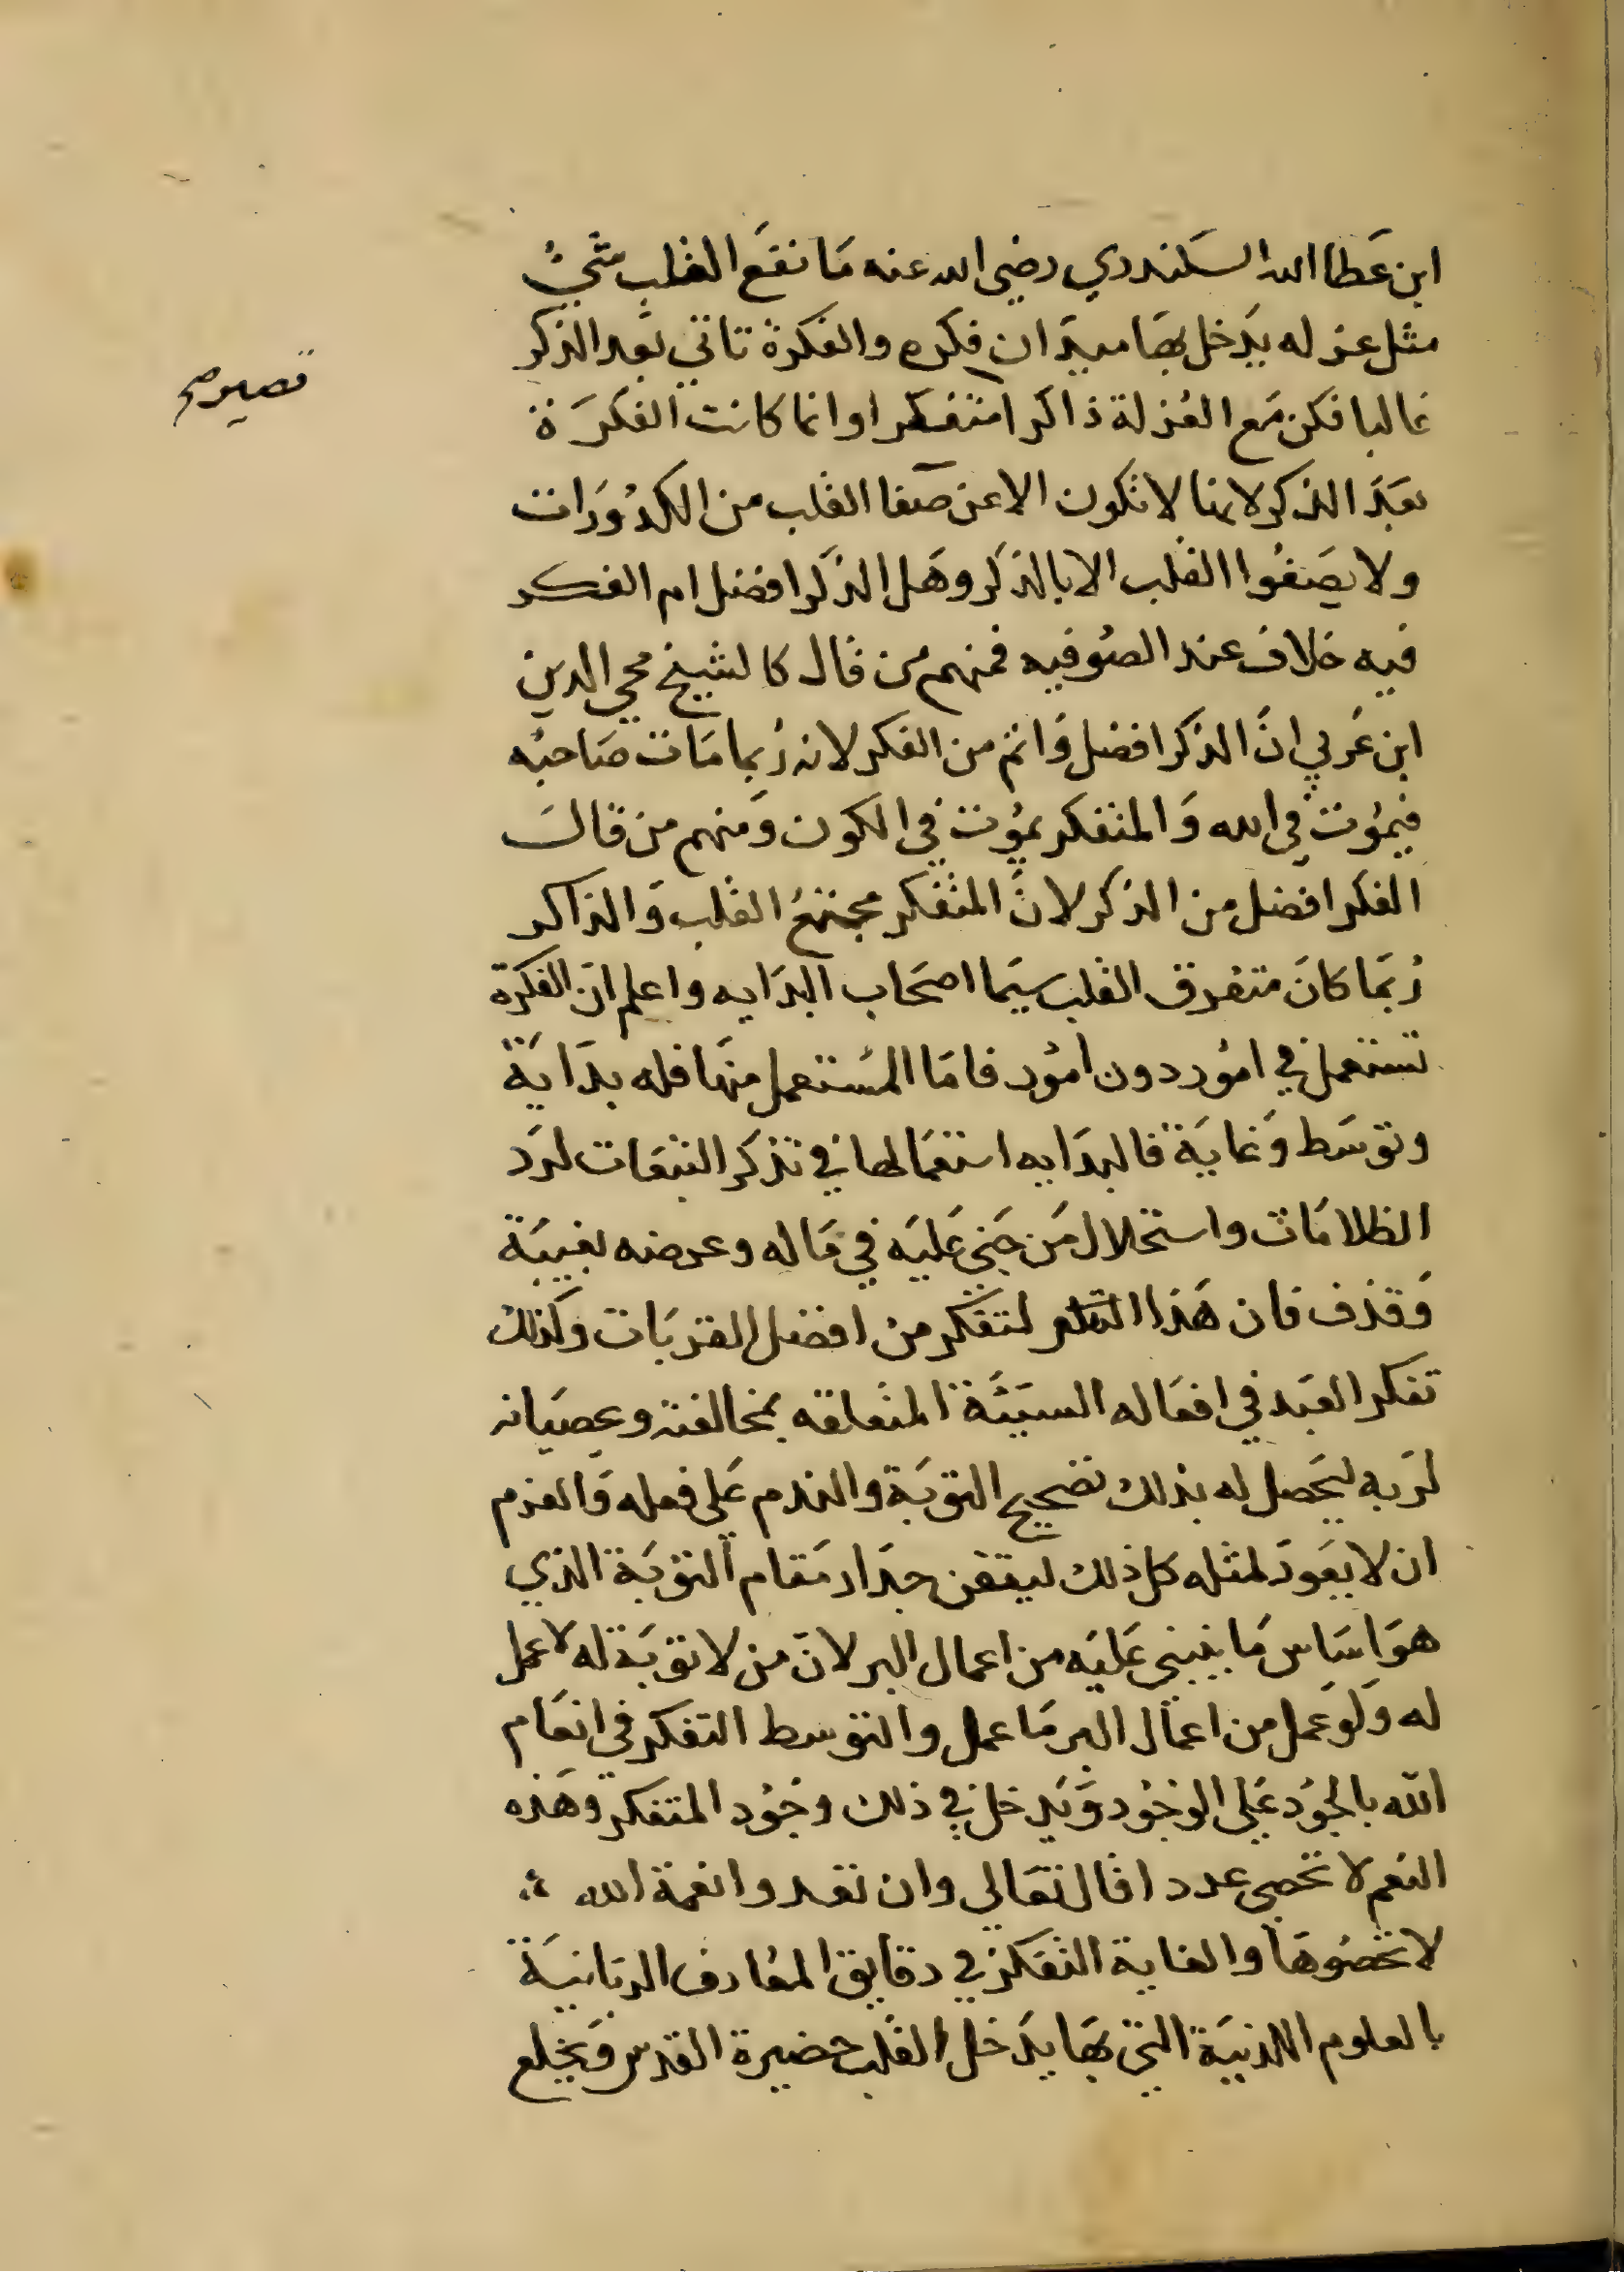 ابن عَطا الله السكندري رضي الله عنه مَا نفعَ القلب شيءُ
مثل عزله يَدخل بهَا ميدَان فكره والفكرة تاتي بَعد الذكر
غالبا فكن مَع العُزلة ذاكرا متفكرا وانما كانت الفكرَة
بعَد الذكر لانها لا تكون الا عن صَفا القلب من الكدُورَات
ولا يصَفُوا القلب الا بالذكر وهَل الذكر افضل ام الفكر
فيه خلاف عند الصُوفيه فمنهم من قال كالشيخ محي الدين
ابن عَربي انَّ الذكر افضل وَاتم من الفكر لانه رُبما مَات صَاحبُه
فيمُوت في الله وَالمتفكر يمُوت في الكون وَمنهم من قالَ
الفكر افضل من الذكر لانَّ المتفكر مجتمعُ القلب وَالذاكر
رُبمَا كانَ متفرق القلب سيمَا اصحَاب البدَايه واعلم انّ الفكرة
تستعمل في امُور دون امُور فامَا المسُتعمل منهَا فله بدَايَة
وتوسَط وَغايَة فالبدَايه استعمَالها في تذكر التبعَات لرَد
الظلامَات واستحلال مَن جَني عَليَه في مَاله وعرضه بغيبَة
وَقذف فان هَذا التفكر من افضل القربَات وَكذلك
تفكر العَبد في افعَاله السَيئَة المتعلقه بمخالفته وعصيَانه
لرَبه ليحَصل له بذلك تصحيح التوبَة والندم عَلي فعله وَالعزم
ان لا يعَودَ لمثله كل ذلك ليتقن جدَار مَقام التوبَة الذي
هوَ اسَاس مَا ينبني عَليَه من اعمال البر لانَ من لا توبَة له لا عمل
له وَلوَ عَمل من اعمَال البر مَا عمل والتوسط التفكر في انعَام
الله بالجوُد عَلي الوجُود وَيدَخل في ذلك وجُود المتفكر وَهَذه
النعم لا تحصي عددا قال تعَالي وان تعدوا نعمة الله
لا تحصُوهَا والغاية التفكر في دقايق المعَارف الربَانيَة
بالعلوم اللدنيَة التي بهَا يدَخل القلب حضيرة القدس وَيخلع